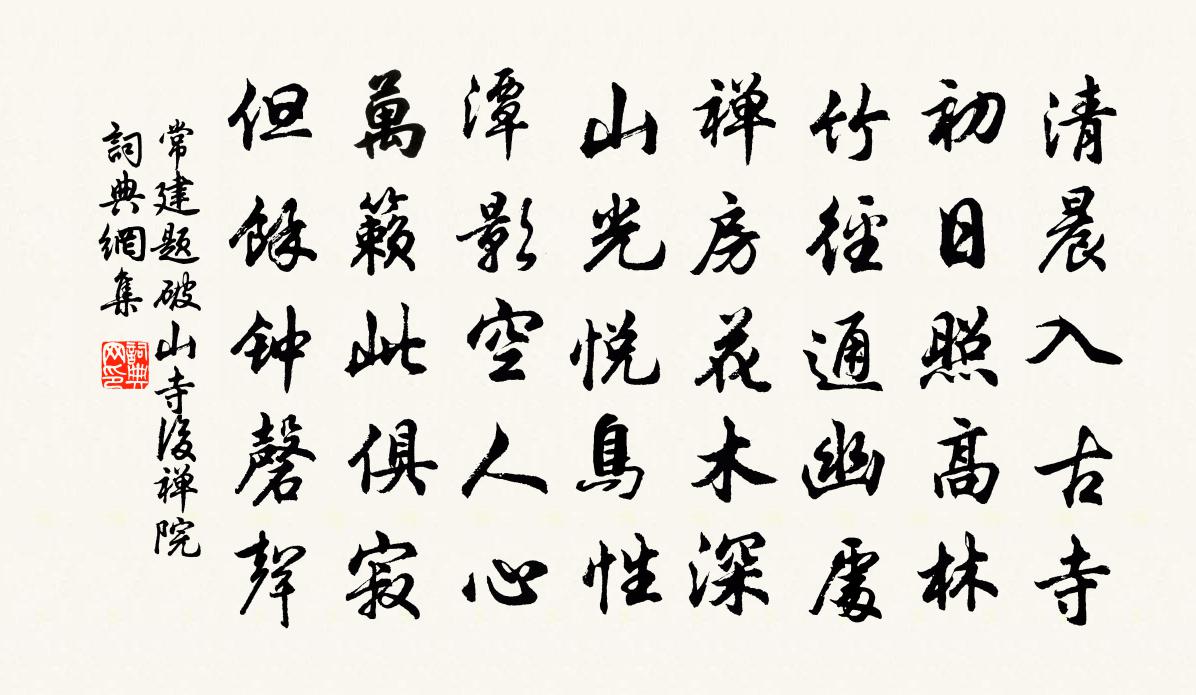 清晨入古寺
初日照高林
竹徑通幽處
禅房花木深
山光悦鳥性
潭影空人心
萬籟此俱寂
但餘钟磬聲
常建題破山寺後禅院
詞典網集
詞典网印